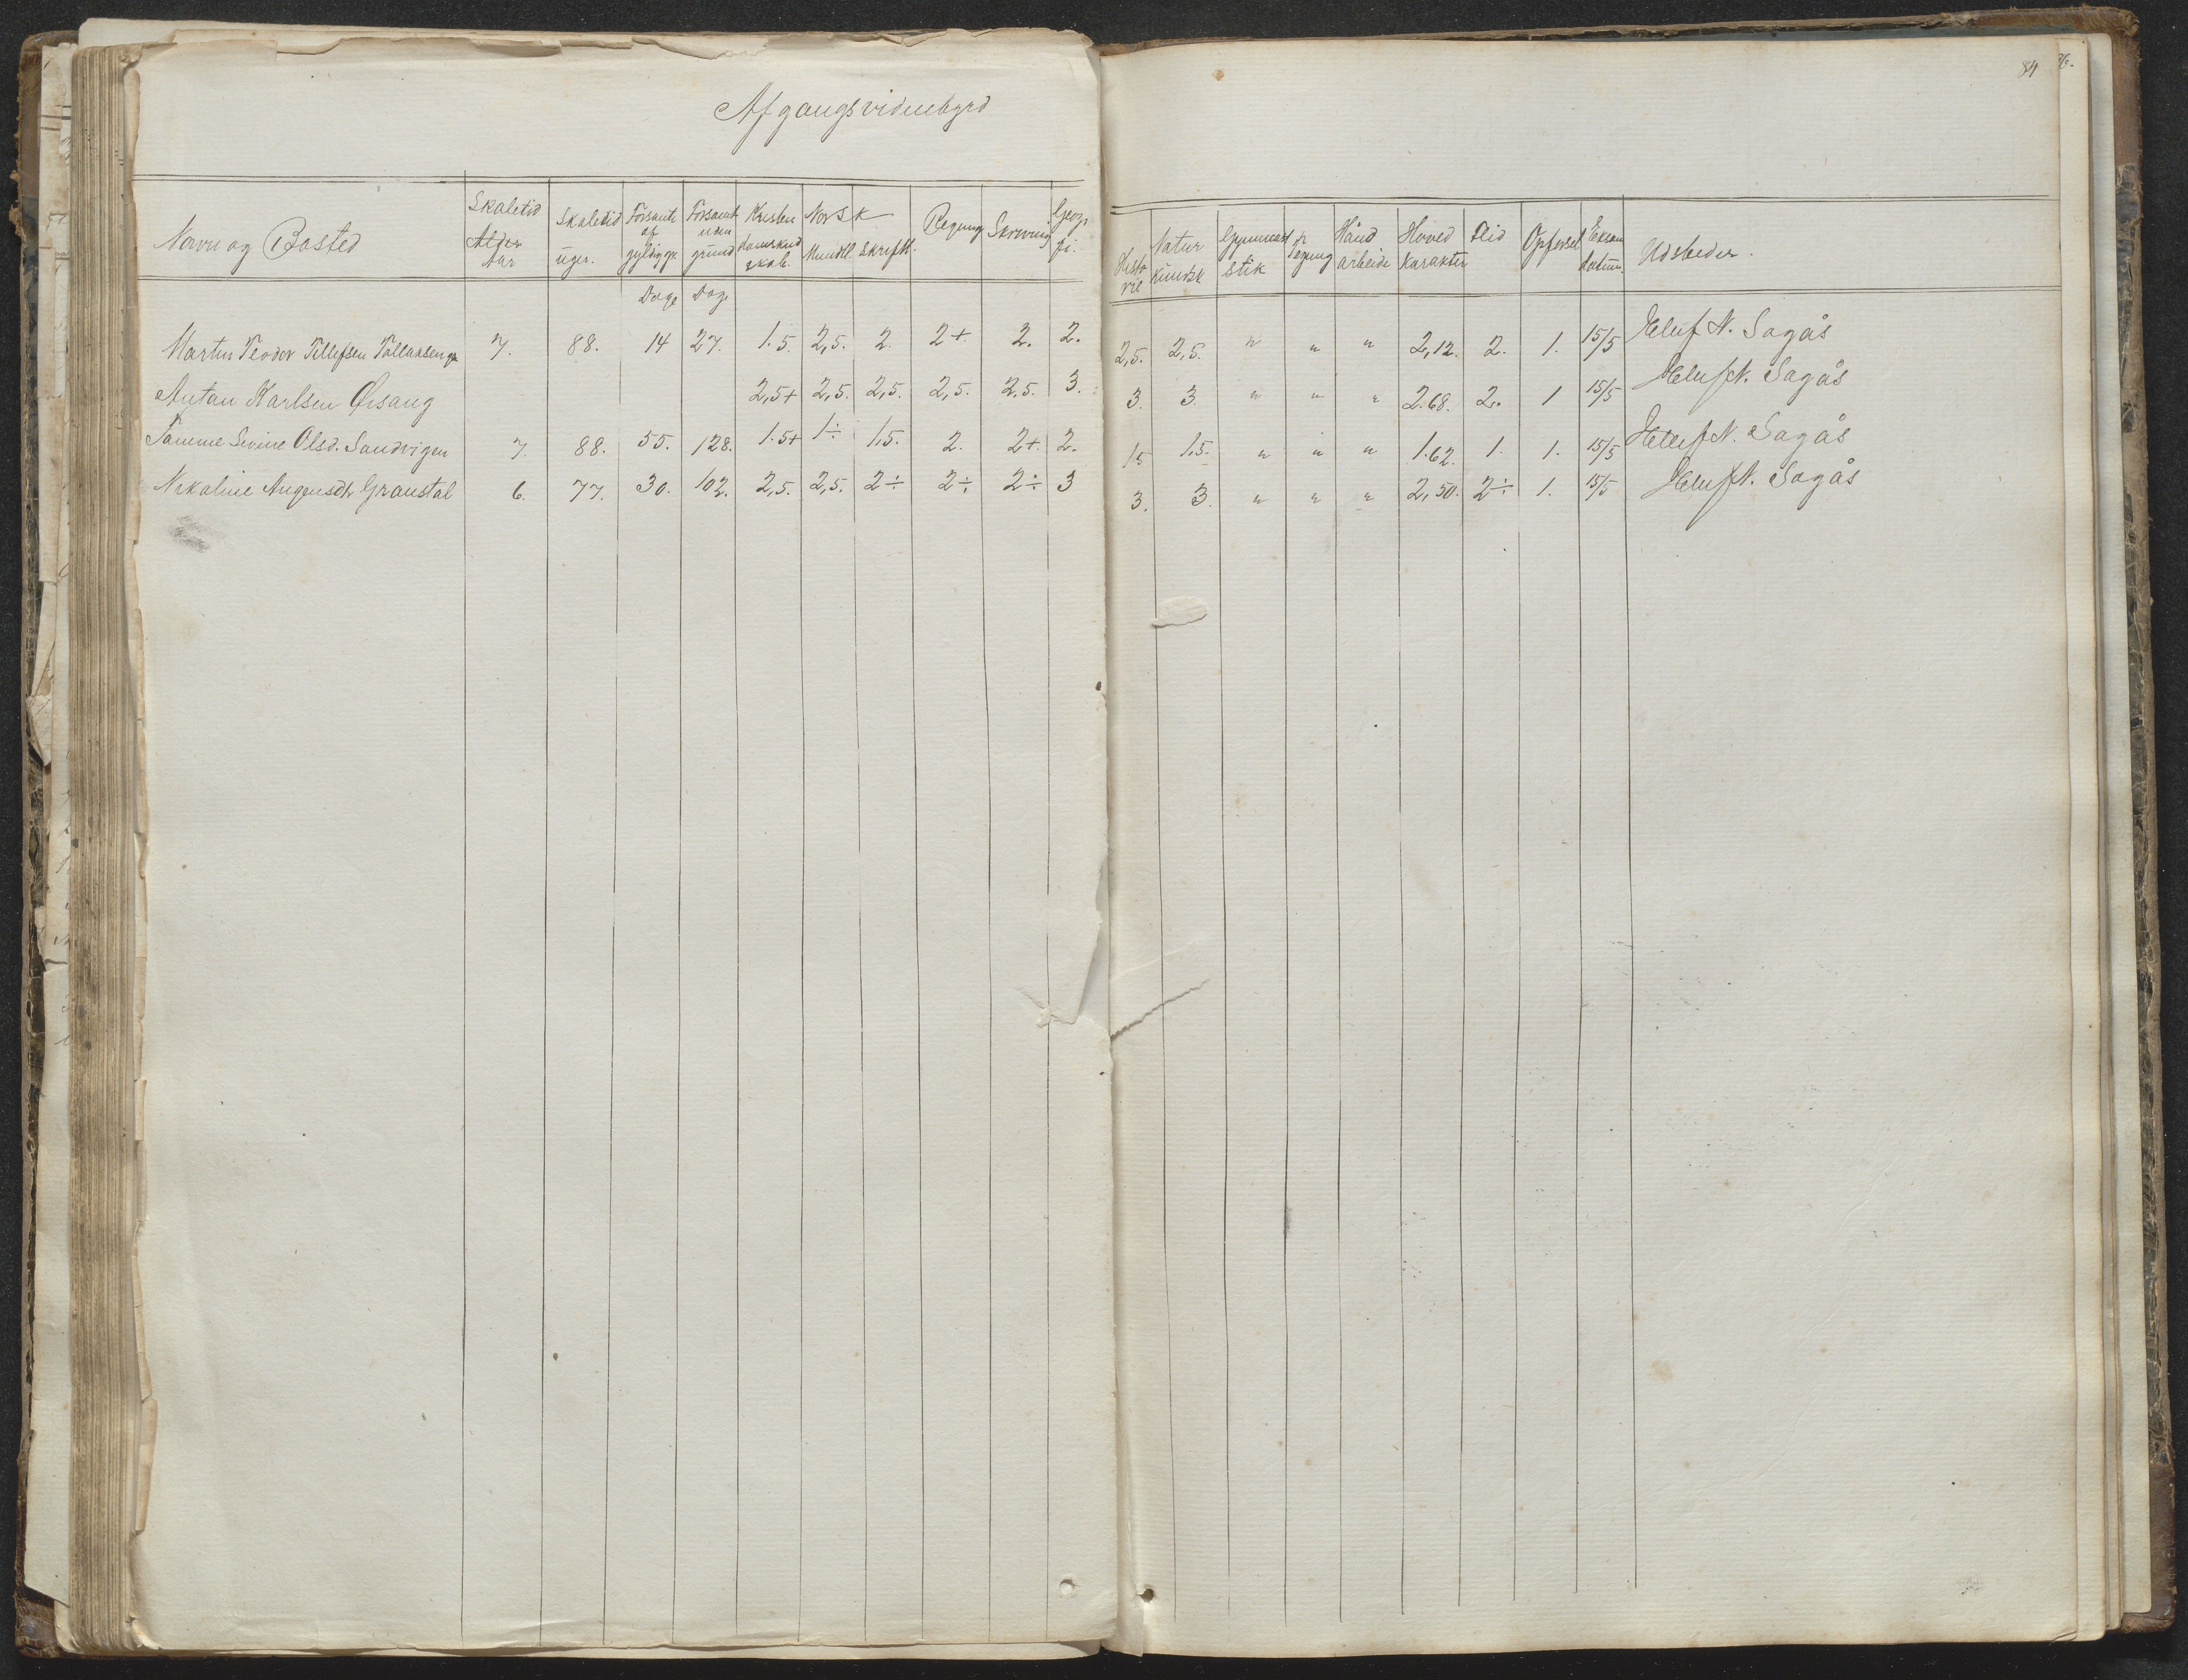 Afgangsvidnebyrd
84
Navn og Bosted | Skoletid Alder Aar | Skoletid uger. | Forsømt af gyldig gr. | Forsømt uden grund | Kristendomskundskab. | Norsk Mundtl. | Skriftl. | Regning | Skrivning | Geografi. | Historie | Naturkundsk | Gymnastik | Tegning | Håndarbeide | Hovedkarakter | Flid | Opførsel | Eksamdatum. | Udsteder.
Dage Dage
Martin Teodor Tellefsen 7. 88. 14 27. 1.5. 2,5. 2. 2+. 2. 2. 2,5. 2,5. " " " 2,12. 2. 1. 15/5 N. Sagås
Antan Karlsen Øisang 2,5+ 2,5. 2,5. 2,5. 2.5. 3. 3. 3. " " " 2.68. 2. 1 15/5 N. Sagås
Tamine Sevine Olsd. Sandvigen 7. 88. 55. 128. 1.5+ 1÷ 1,5. 2. 2+. 2. 1,5 1,5. " " " 1.62. 1. 1. 15/5 N. Sagås
Nikoline Graustøl 6. 77. 30. 102. 2,5. 2,5. 2÷ 2÷ 2÷ 3 3. 3. " " " 2,50. 2÷ 1. 15/5 N. Sagås